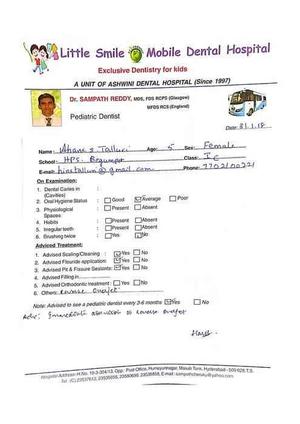 Little Smile Mobile Dental Hospital
Exclusive Dentistry for kids
A UNIT OF ASHWINI DENTAL HOSPITAL (Since 1997)
Dr. SAMPATH REDDY, MDS, FDS RCPS (Glasgow)
MFDS RCS (England)
Pediatric Dentist
Date: 31.1.18
Name: Talluri Age: 5 Sex: Female
School: HPS. Begumpet Class: I C
E-mail: @gmail.com Phone:
On Examination:
1. Dental Caries in :
(Cavities)
2. Oral Hygiene Status : Good Average Poor
3. Physiological : Present Absent
Spaces
4. Habits : Present Absent
5. Irregular teeth : Present Absent
6. Brushing twice : Yes No
Adviced Treatment:
1. Advised Scaling/Cleaning : Yes No
2. Advised Flouride application : Yes No
3. Advised Pit & Fissure Sealants : Yes No
4. Advised Filling in
5. Advised Orthodontic treatment : Yes No
6. Others: Reverse overjet
Note: Advised to see a pediatric dentist every 3-6 months Yes No
Adv: Immediate attention to reverse overjet
Hospital Address: H.No. 10-3-304/13, Opp. Post Office, Humayunagar, Masab Tank, Hyderabad - 500 028. T.S.